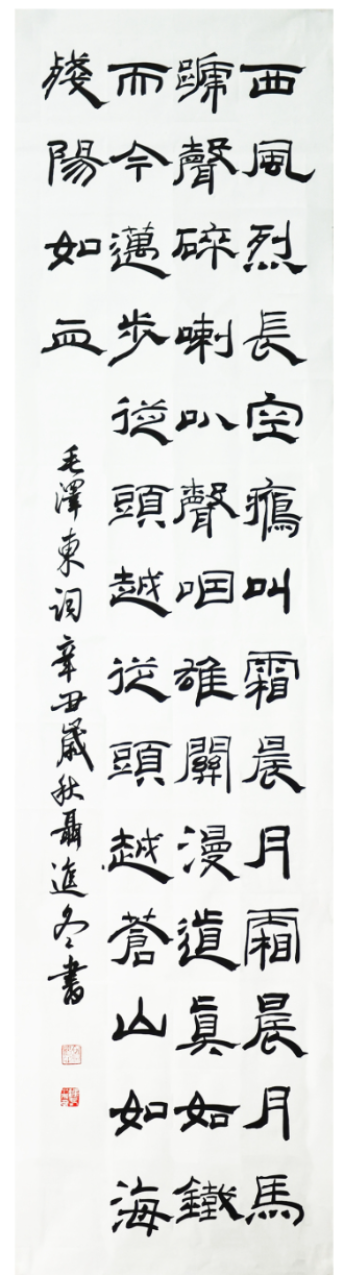 西風烈長空鴈叫霜晨月霜晨月馬
蹏聲碎喇叭聲咽雄關漫道眞如鐵
而今邁步從頭越從頭越蒼山如海
殘陽如血
毛澤東詞辛丑歲秋聶進冬書